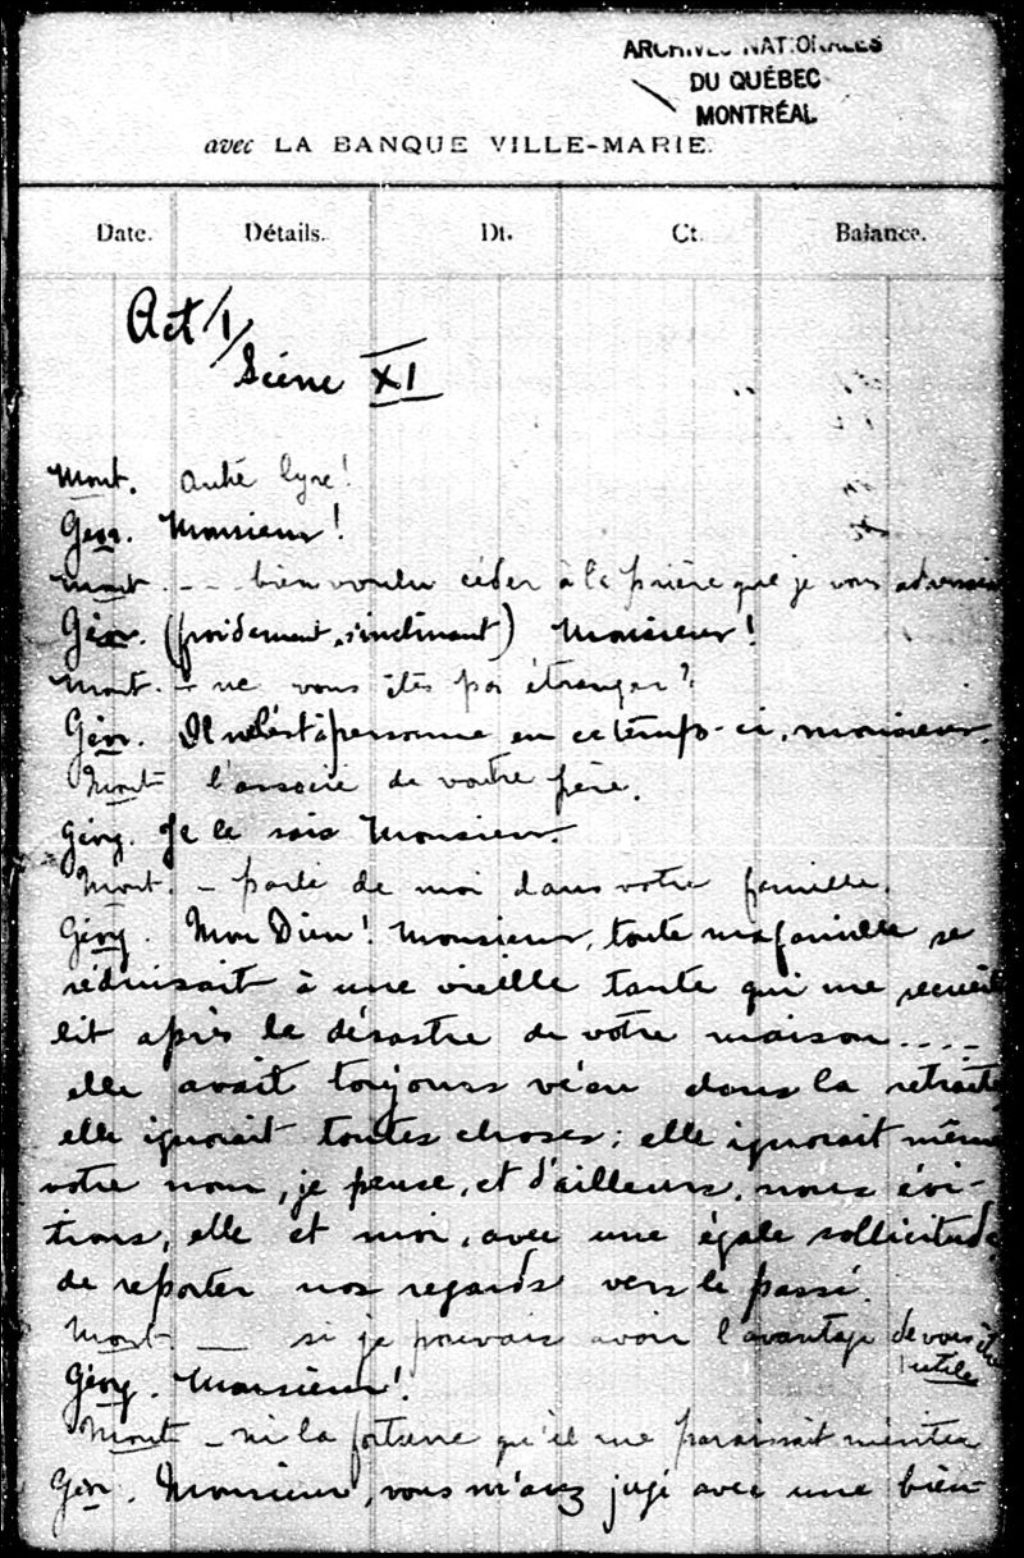 ARCHIVES NATIONALES
DU QUÉBEC
MONTRÉAL
avec LA BANQUE VILLE-MARIE.
Date. Détails. Dt. Ct. Balance.
Act I/
Scène XI
Mont.
Geor. Monsieur!
Mont. -- bien voulu céder à la prière que je vous adressais
Géor. (froidement, s'inclinant) Monsieur!
Mont. - ne vous êtes pas étranger?
Géor. Il ne l'est à personne en ce temps-ci, monsieur.
Mont l'associé de votre père.
Géorg. Je le sais Monsieur.
Mont. - parlé de moi dans votre famille.
Géorg. Mon Dieu! Monsieur, toute ma famille se
réduisait à une vieille tante qui me recueil
lit après le désastre de votre maison....
elle avait toujours vécu dans la retraite
elle ignorait toutes choses; elle ignorait même
votre nom, je pense, et d'ailleurs, nous évi-
tions, elle et moi, avec une égale sollicitude,
de reporter nos regards vers le passé.
Mont. — si je pouvais avoir l'avantage de vous être
utile
Géorg. Monsieur!
Mont - ni la fortune qu'il me paraissait mériter
Géor. Monsieur, vous m'avez jugé avec une bien-